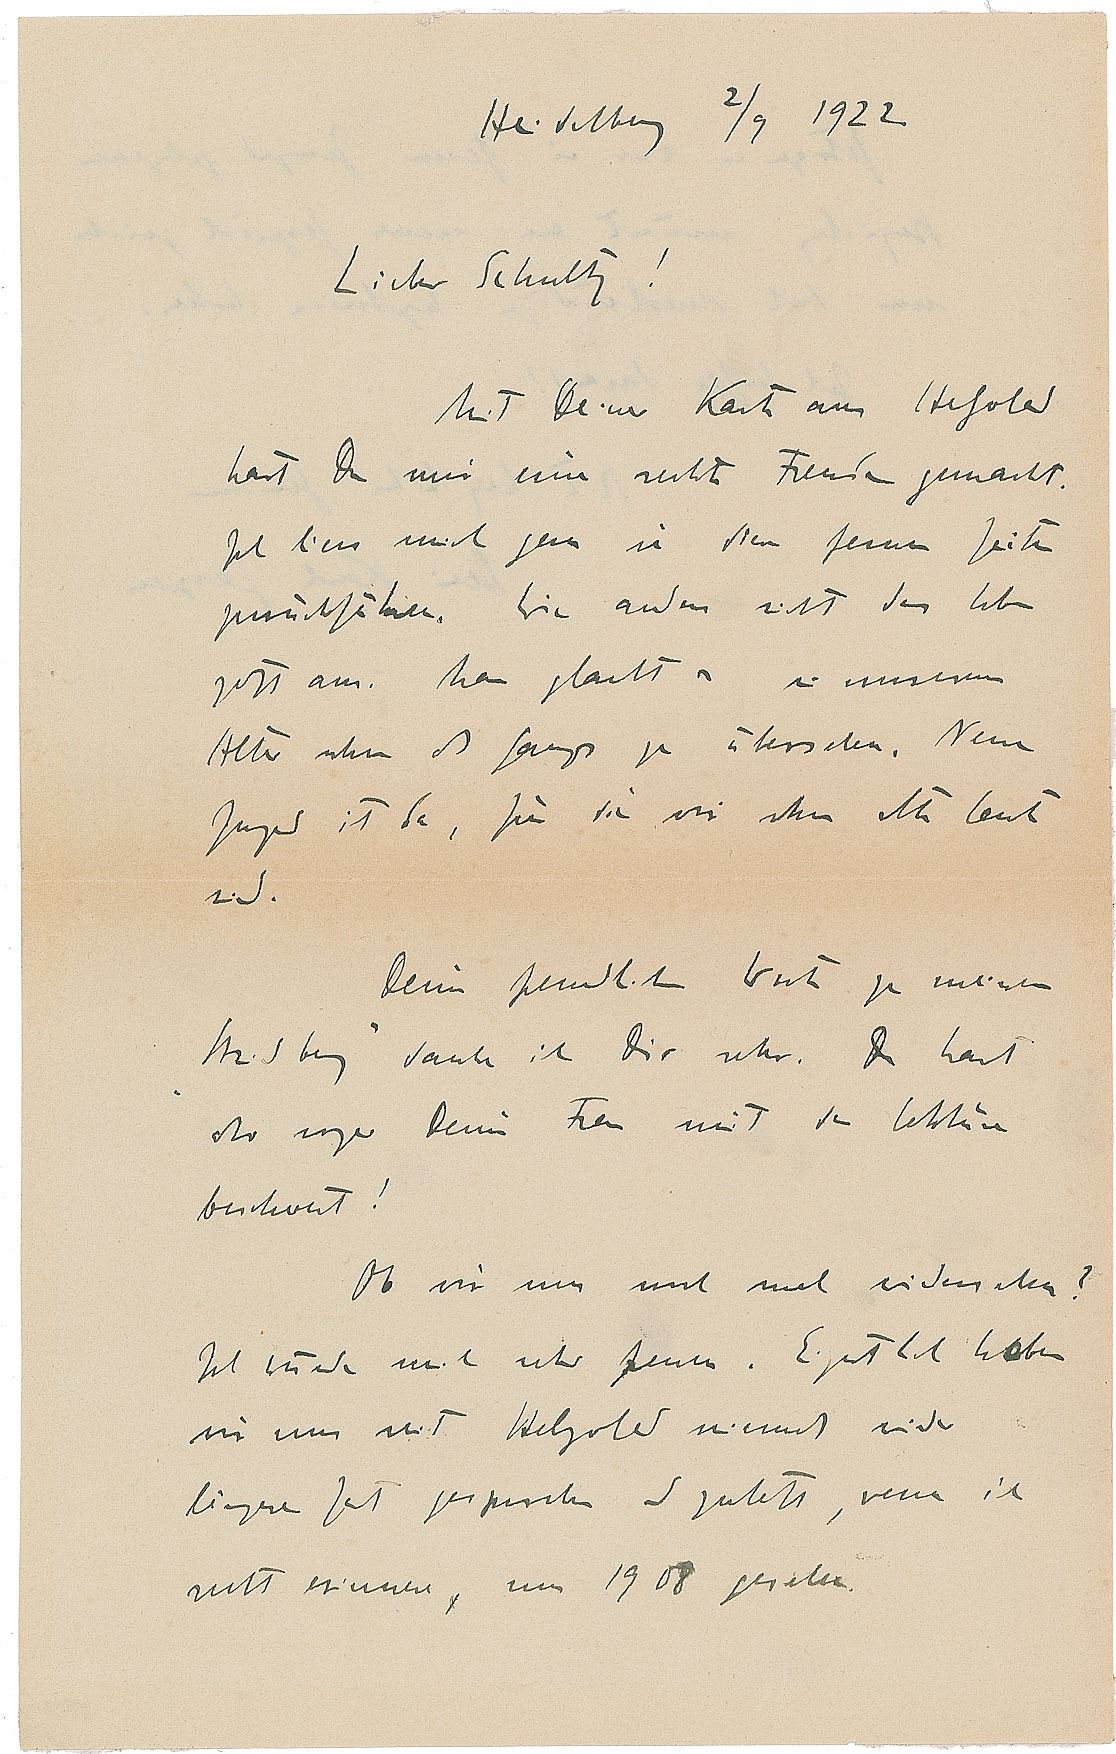 Heidelberg 2/9 1922
Lieber Schultz!
Mit Deiner Karte aus Helgoland
hast Du mir eine rechte Freude gemacht.
Ich liess mich gern in diese fernen Zeiten
zurückführen. Wie anders sieht das Leben
jetzt aus. Man glaubt es in unserem
Alter schon als Ganzes zu übersehen. Neue
Jugend ist da, für die wir schon alte Leute
sind.
Deine freundlichen Worte zu meinem
„Strindberg" danke ich Dir sehr. Du hast
aber sogar Deine Frau mit der Lektüre
beschwert!
Ob wir uns noch mal wiedersehen?
Ich würde mich sehr freuen. Eigentlich haben
wir uns seit Helgoland niemals wieder
längere Zeit gesprochen und zuletzt, wenn ich
recht erinnere, uns 1908 gesehen.